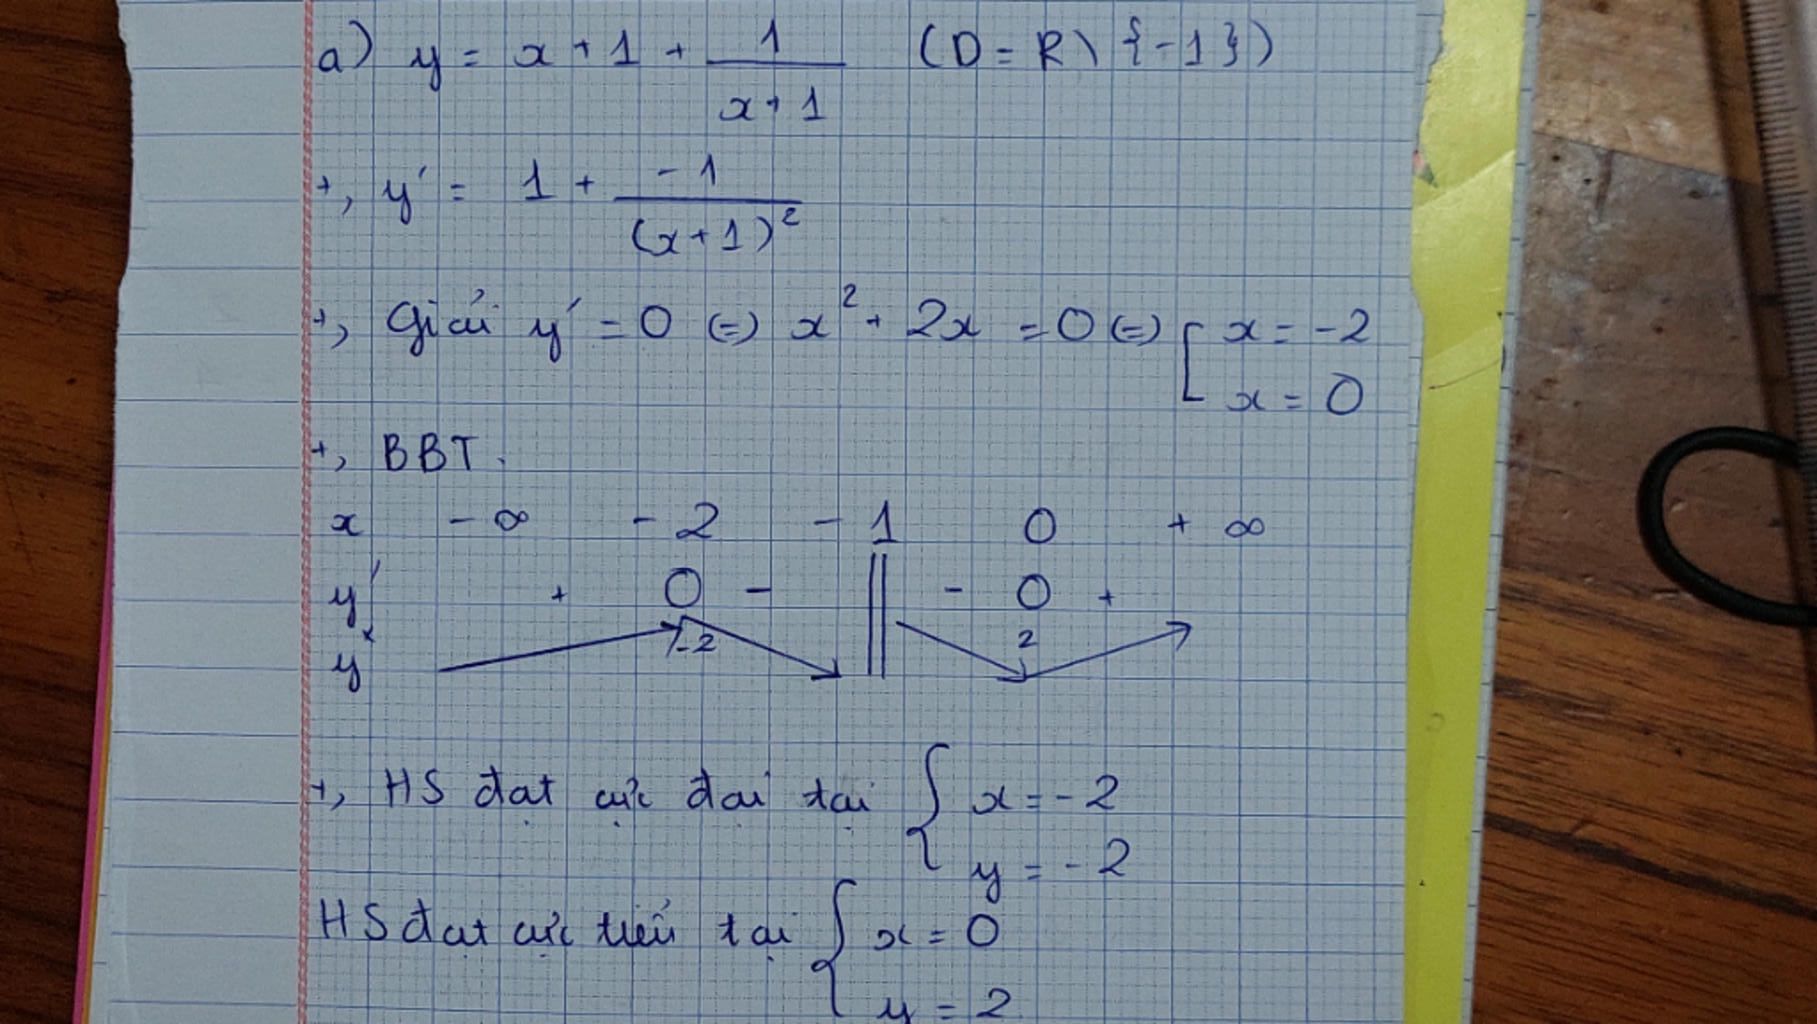 a) y = x + 1 + 1/(x+1) (D = R \ {-1})
+, y' = 1 + -1/(x+1)²
+, Giải y' = 0 (=) x² + 2x = 0 (=) [ x = -2
x = 0
+, BBT.
x -∞ -2 -1 0 +∞
y' + 0 - || - 0 +
y -2 2
+, HS đạt cực đại tại { x = -2
y = -2
HS đạt cực tiểu tại { x = 0
y = 2